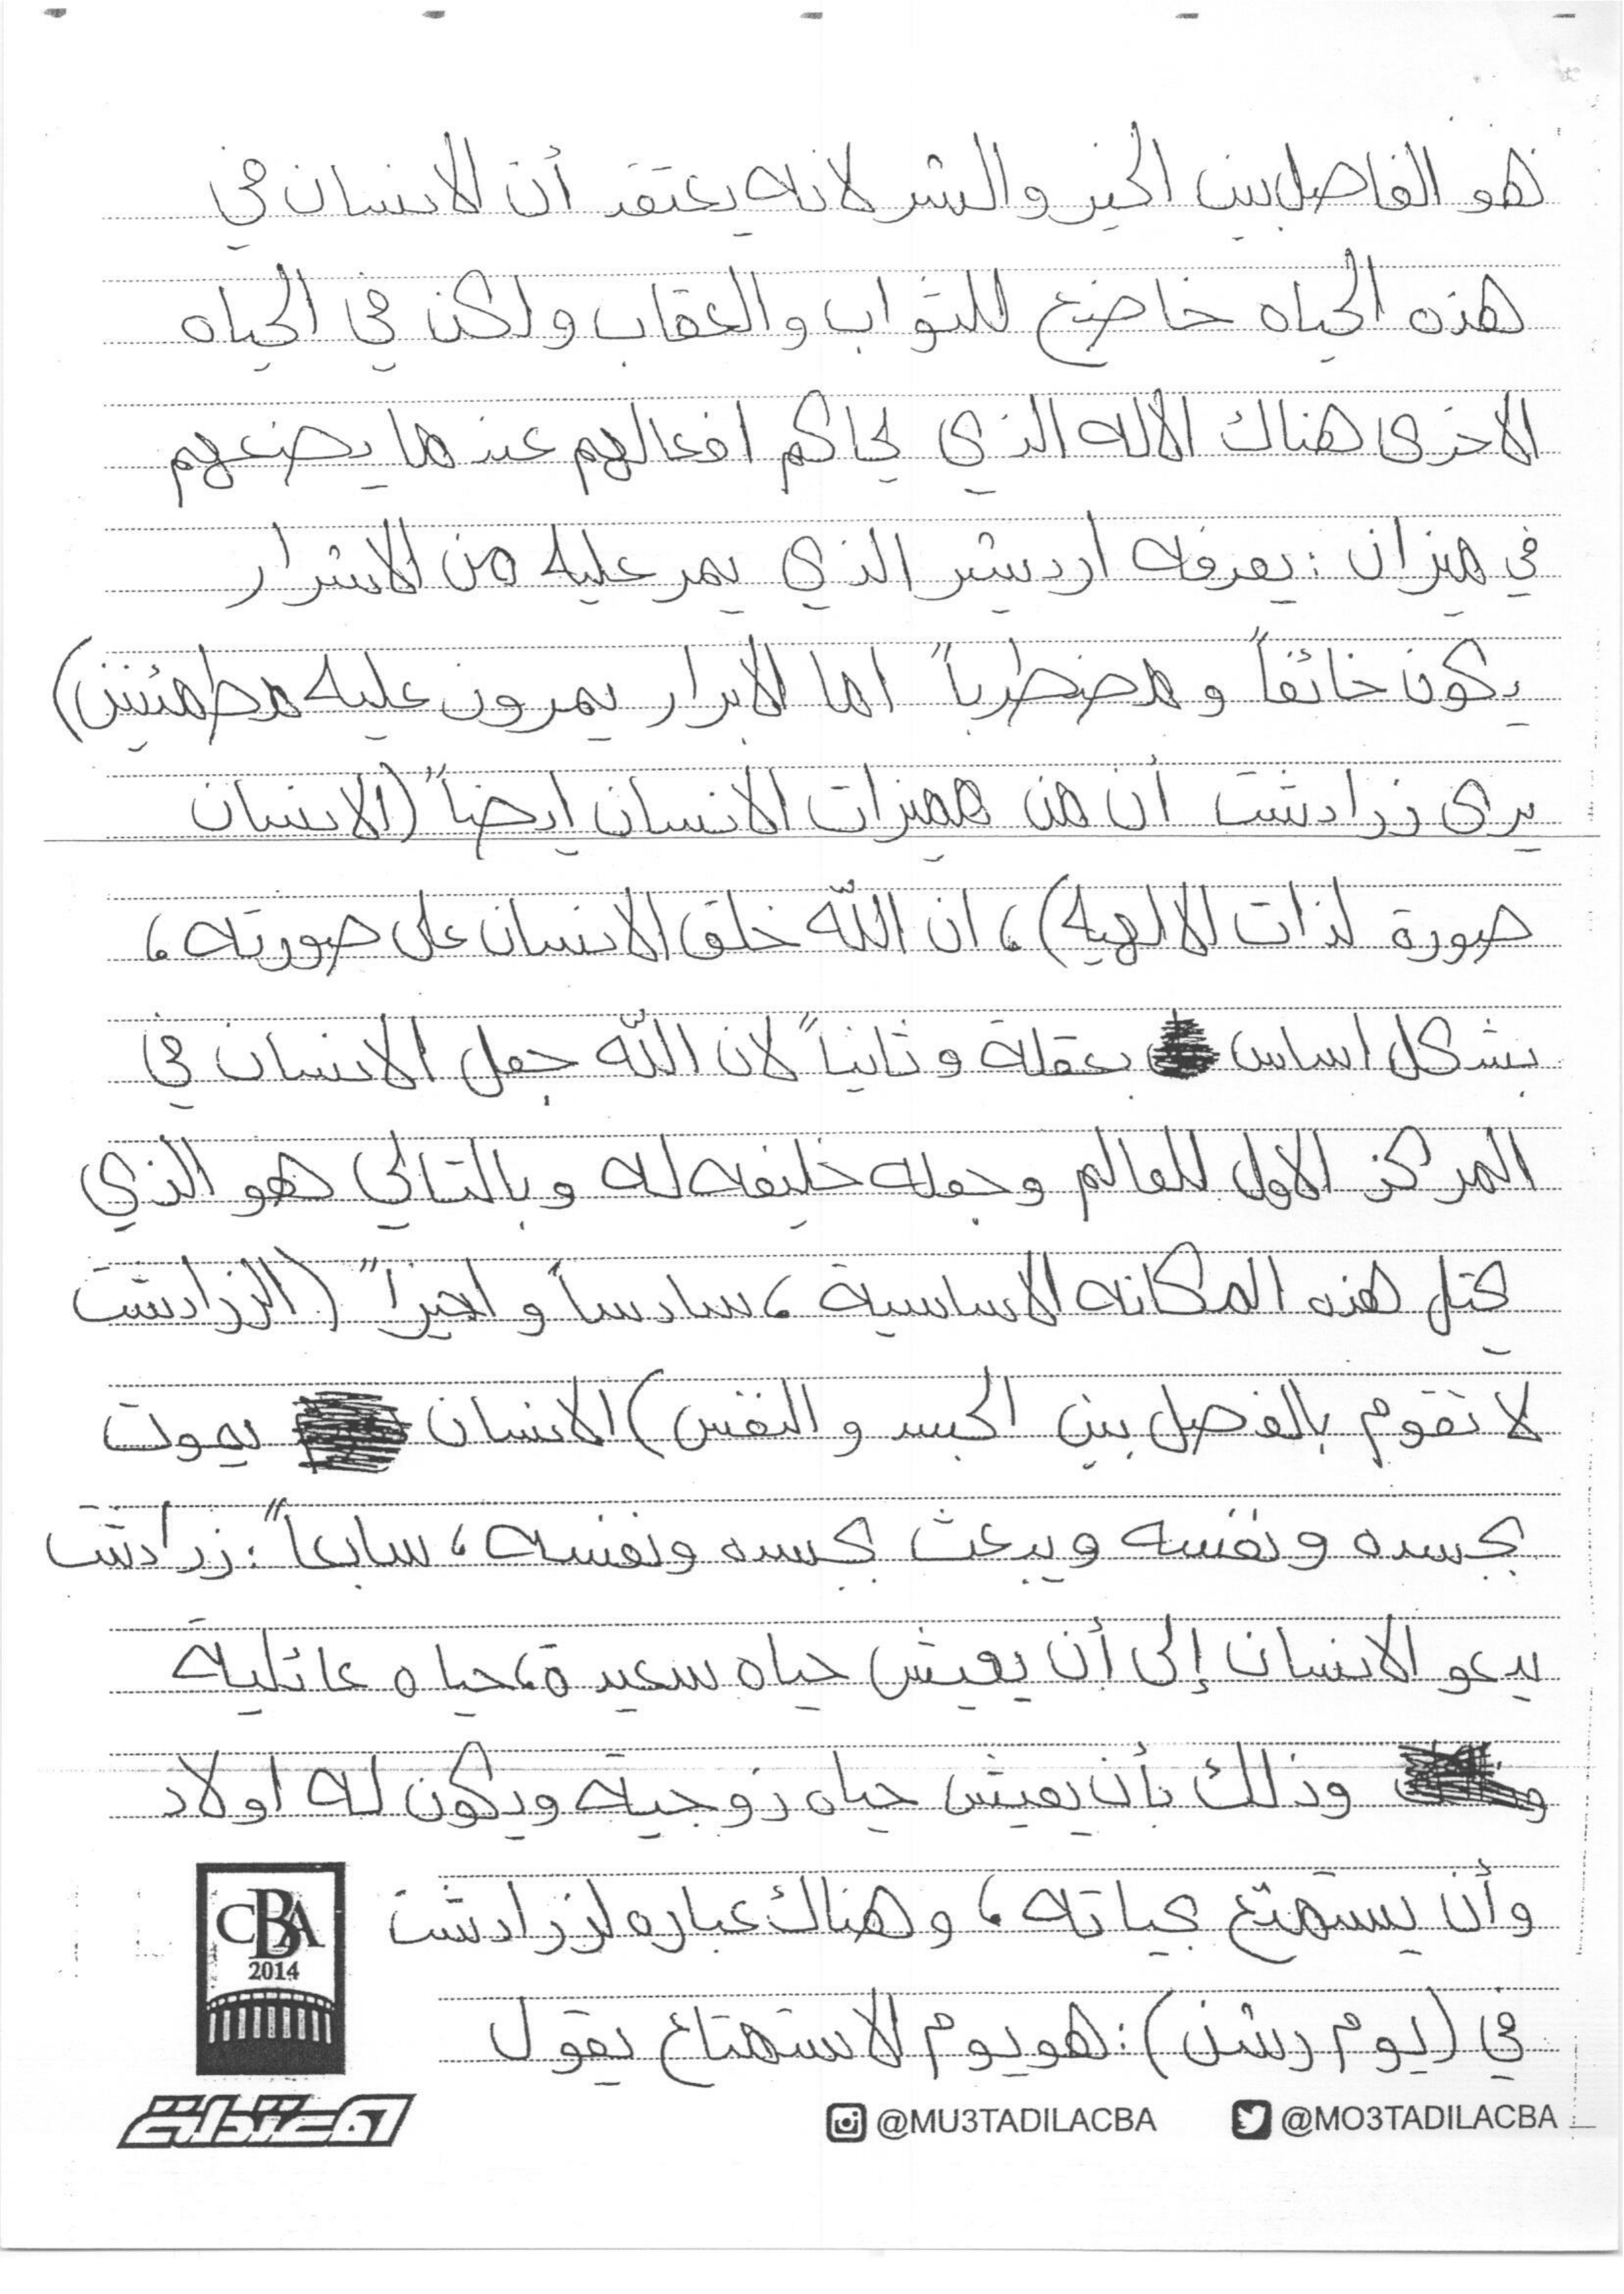 فهو الفاصل بين الخير والشر لانه يعتقد أن الانسان في
هذه الحياه خاضع للثواب والعقاب ولكن في الحياه
الاخرى هناك الاله الذي يحاكم افعالهم عندما يضعهم
في ميزان : يعرفه اردشير الذي يمر عليه من الاشرار
يكون خائفاً ومضطرباً اما الابرار يمرون عليه مطمئنين)
يرى زرادشت أن من مميزات الانسان ايضاً (الانسان
صورة لذات الالهيه)، ان الله خلق الانسان على صورته،
بشكل اساس بعقلة وثانياً لان الله جعل الانسان في
المركز الاول للعالم وجعله خليفه له وبالتالي هو الذي
يحتل هذه المكانه الاساسية، سادساً واخيراً (الزرادشت
لا تقوم بالفصل بين الجسد والنفس) الانسان يموت
بجسده ونفسه ويبعث بجسده ونفسه، سابعاً: زرادشت
يدعو الانسان إلى أن يعيش حياه سعيدة، حياه عائلية
وذلك بأن يعيش حياه زوجية ويكون له اولاد
وأن يستمتع بحياته، وهناك عباره لزرادشت
في (يوم رشن) : هو يوم الاستمتاع يقول
CBA
2014
المعتدلة
@MU3TADILACBA @MO3TADILACBA